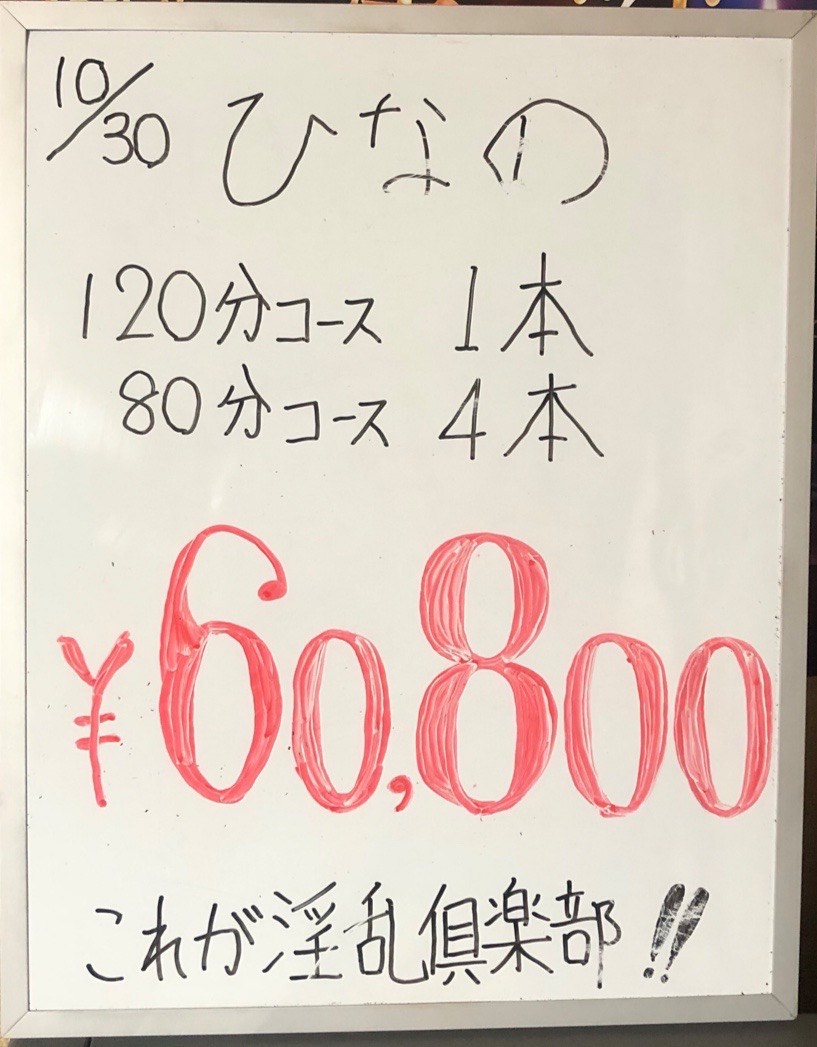 10/30 ひなの
120分コース 1本
80分コース 4本
¥60,800
これが淫乱倶楽部!!